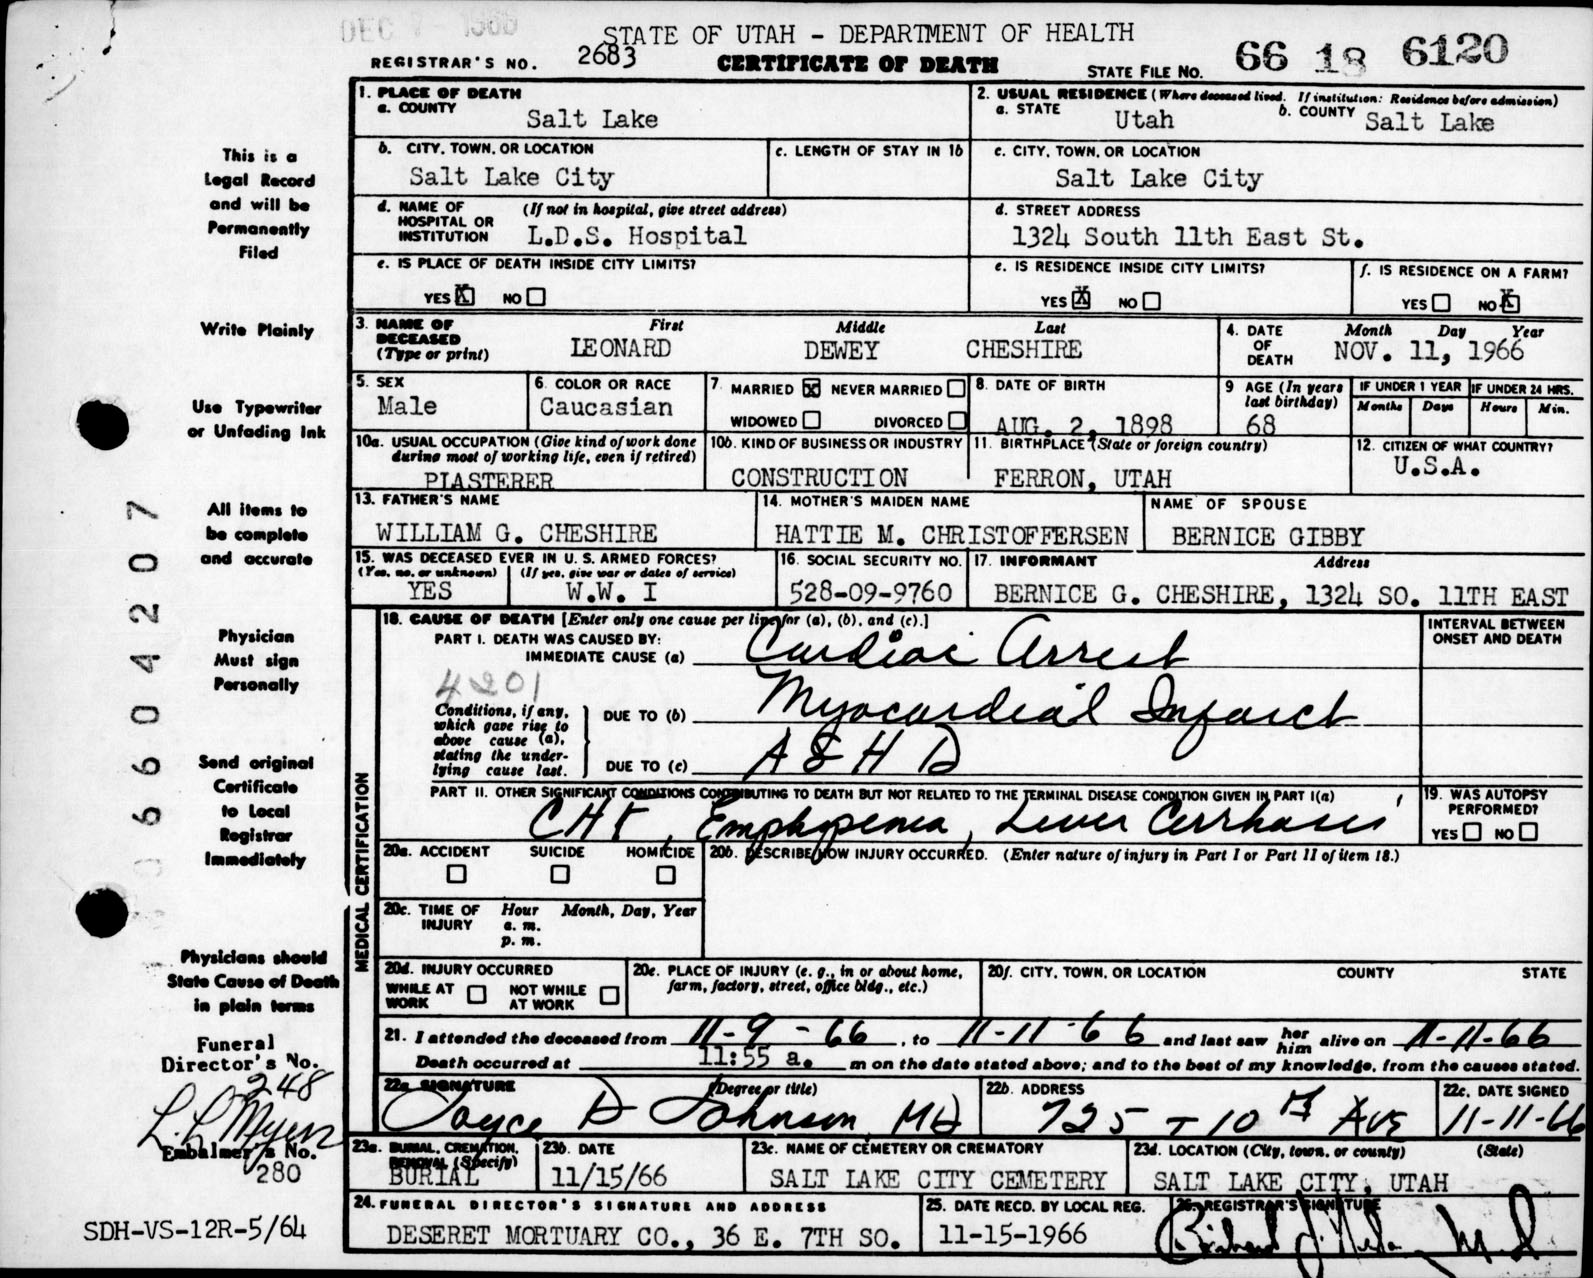 DEC 7 - 1966
STATE OF UTAH - DEPARTMENT OF HEALTH
REGISTRAR'S NO. 2683 CERTIFICATE OF DEATH STATE FILE NO. 66 18 6120
1. PLACE OF DEATH
a. COUNTY Salt Lake
2. USUAL RESIDENCE (Where deceased lived. If institution: Residence before admission)
a. STATE Utah b. COUNTY Salt Lake
b. CITY, TOWN, OR LOCATION Salt Lake City
c. LENGTH OF STAY IN 1b
c. CITY, TOWN, OR LOCATION Salt Lake City
d. NAME OF HOSPITAL OR INSTITUTION (If not in hospital, give street address) L.D.S. Hospital
d. STREET ADDRESS 1324 South 11th East St.
e. IS PLACE OF DEATH INSIDE CITY LIMITS?
YES X NO
e. IS RESIDENCE INSIDE CITY LIMITS?
YES X NO
f. IS RESIDENCE ON A FARM?
YES NO X
3. NAME OF DECEASED (Type or print)
First Middle Last
LEONARD DEWEY CHESHIRE
4. DATE OF DEATH Month Day Year
NOV. 11, 1966
5. SEX Male
6. COLOR OR RACE Caucasian
7. MARRIED X NEVER MARRIED
WIDOWED DIVORCED
8. DATE OF BIRTH AUG. 2, 1898
9 AGE (In years last birthday) 68
IF UNDER 1 YEAR Months Days
IF UNDER 24 HRS. Hours Min.
10a. USUAL OCCUPATION (Give kind of work done during most of working life, even if retired)
PLASTERER
10b. KIND OF BUSINESS OR INDUSTRY CONSTRUCTION
11. BIRTHPLACE (State or foreign country) FERRON, UTAH
12. CITIZEN OF WHAT COUNTRY? U.S.A.
13. FATHER'S NAME WILLIAM G. CHESHIRE
14. MOTHER'S MAIDEN NAME HATTIE M. CHRISTOFFERSEN
NAME OF SPOUSE BERNICE GIBBY
15. WAS DECEASED EVER IN U.S. ARMED FORCES?
(Yes, no, or unknown) (If yes, give war or dates of service)
YES W.W. I
16. SOCIAL SECURITY NO. 528-09-9760
17. INFORMANT Address
BERNICE G. CHESHIRE, 1324 SO. 11TH EAST
MEDICAL CERTIFICATION
18. CAUSE OF DEATH [Enter only one cause per line for (a), (b), and (c).]
INTERVAL BETWEEN ONSET AND DEATH
PART I. DEATH WAS CAUSED BY:
IMMEDIATE CAUSE (a) Cardiac Arrest
4201
Conditions, if any, which gave rise to above cause (a), stating the underlying cause last.
DUE TO (b) Myocardial Infarct
DUE TO (c) A S H D
PART II. OTHER SIGNIFICANT CONDITIONS CONTRIBUTING TO DEATH BUT NOT RELATED TO THE TERMINAL DISEASE CONDITION GIVEN IN PART I(a)
CHF, Emphysema, Liver Cirrhosis
19. WAS AUTOPSY PERFORMED?
YES NO
20a. ACCIDENT SUICIDE HOMICIDE
20b. DESCRIBE HOW INJURY OCCURRED. (Enter nature of injury in Part I or Part II of item 18.)
20c. TIME OF INJURY Hour Month, Day, Year
a. m.
p. m.
20d. INJURY OCCURRED
WHILE AT WORK NOT WHILE AT WORK
20e. PLACE OF INJURY (e. g., in or about home, farm, factory, street, office bldg., etc.)
20f. CITY, TOWN, OR LOCATION COUNTY STATE
21. I attended the deceased from 11-9-66, to 11-11-66 and last saw her him alive on 11-11-66
Death occurred at 11:55 a. m on the date stated above; and to the best of my knowledge, from the causes stated.
22a. SIGNATURE (Degree or title)
Joyce D Johnson MD
22b. ADDRESS 725 - 10th Ave
22c. DATE SIGNED 11-11-66
23a. BURIAL, CREMATION, REMOVAL (Specify) BURIAL
23b. DATE 11/15/66
23c. NAME OF CEMETERY OR CREMATORY SALT LAKE CITY CEMETERY
23d. LOCATION (City, town, or county) (State)
SALT LAKE CITY, UTAH
24. FUNERAL DIRECTOR'S SIGNATURE AND ADDRESS
DESERET MORTUARY CO., 36 E. 7TH SO.
25. DATE RECD. BY LOCAL REG. 11-15-1966
26. REGISTRAR'S SIGNATURE
This is a
Legal Record
and will be
Permanently
Filed
Write Plainly
Use Typewriter
or Unfading Ink
All items to
be complete
and accurate
Physician
Must sign
Personally
Send original
Certificate
to Local
Registrar
Immediately
Physicians should
State Cause of Death
in plain terms
Funeral
Director's No.
248
L. L. Myers
Embalmer's No.
280
SDH-VS-12R-5/64
6604207